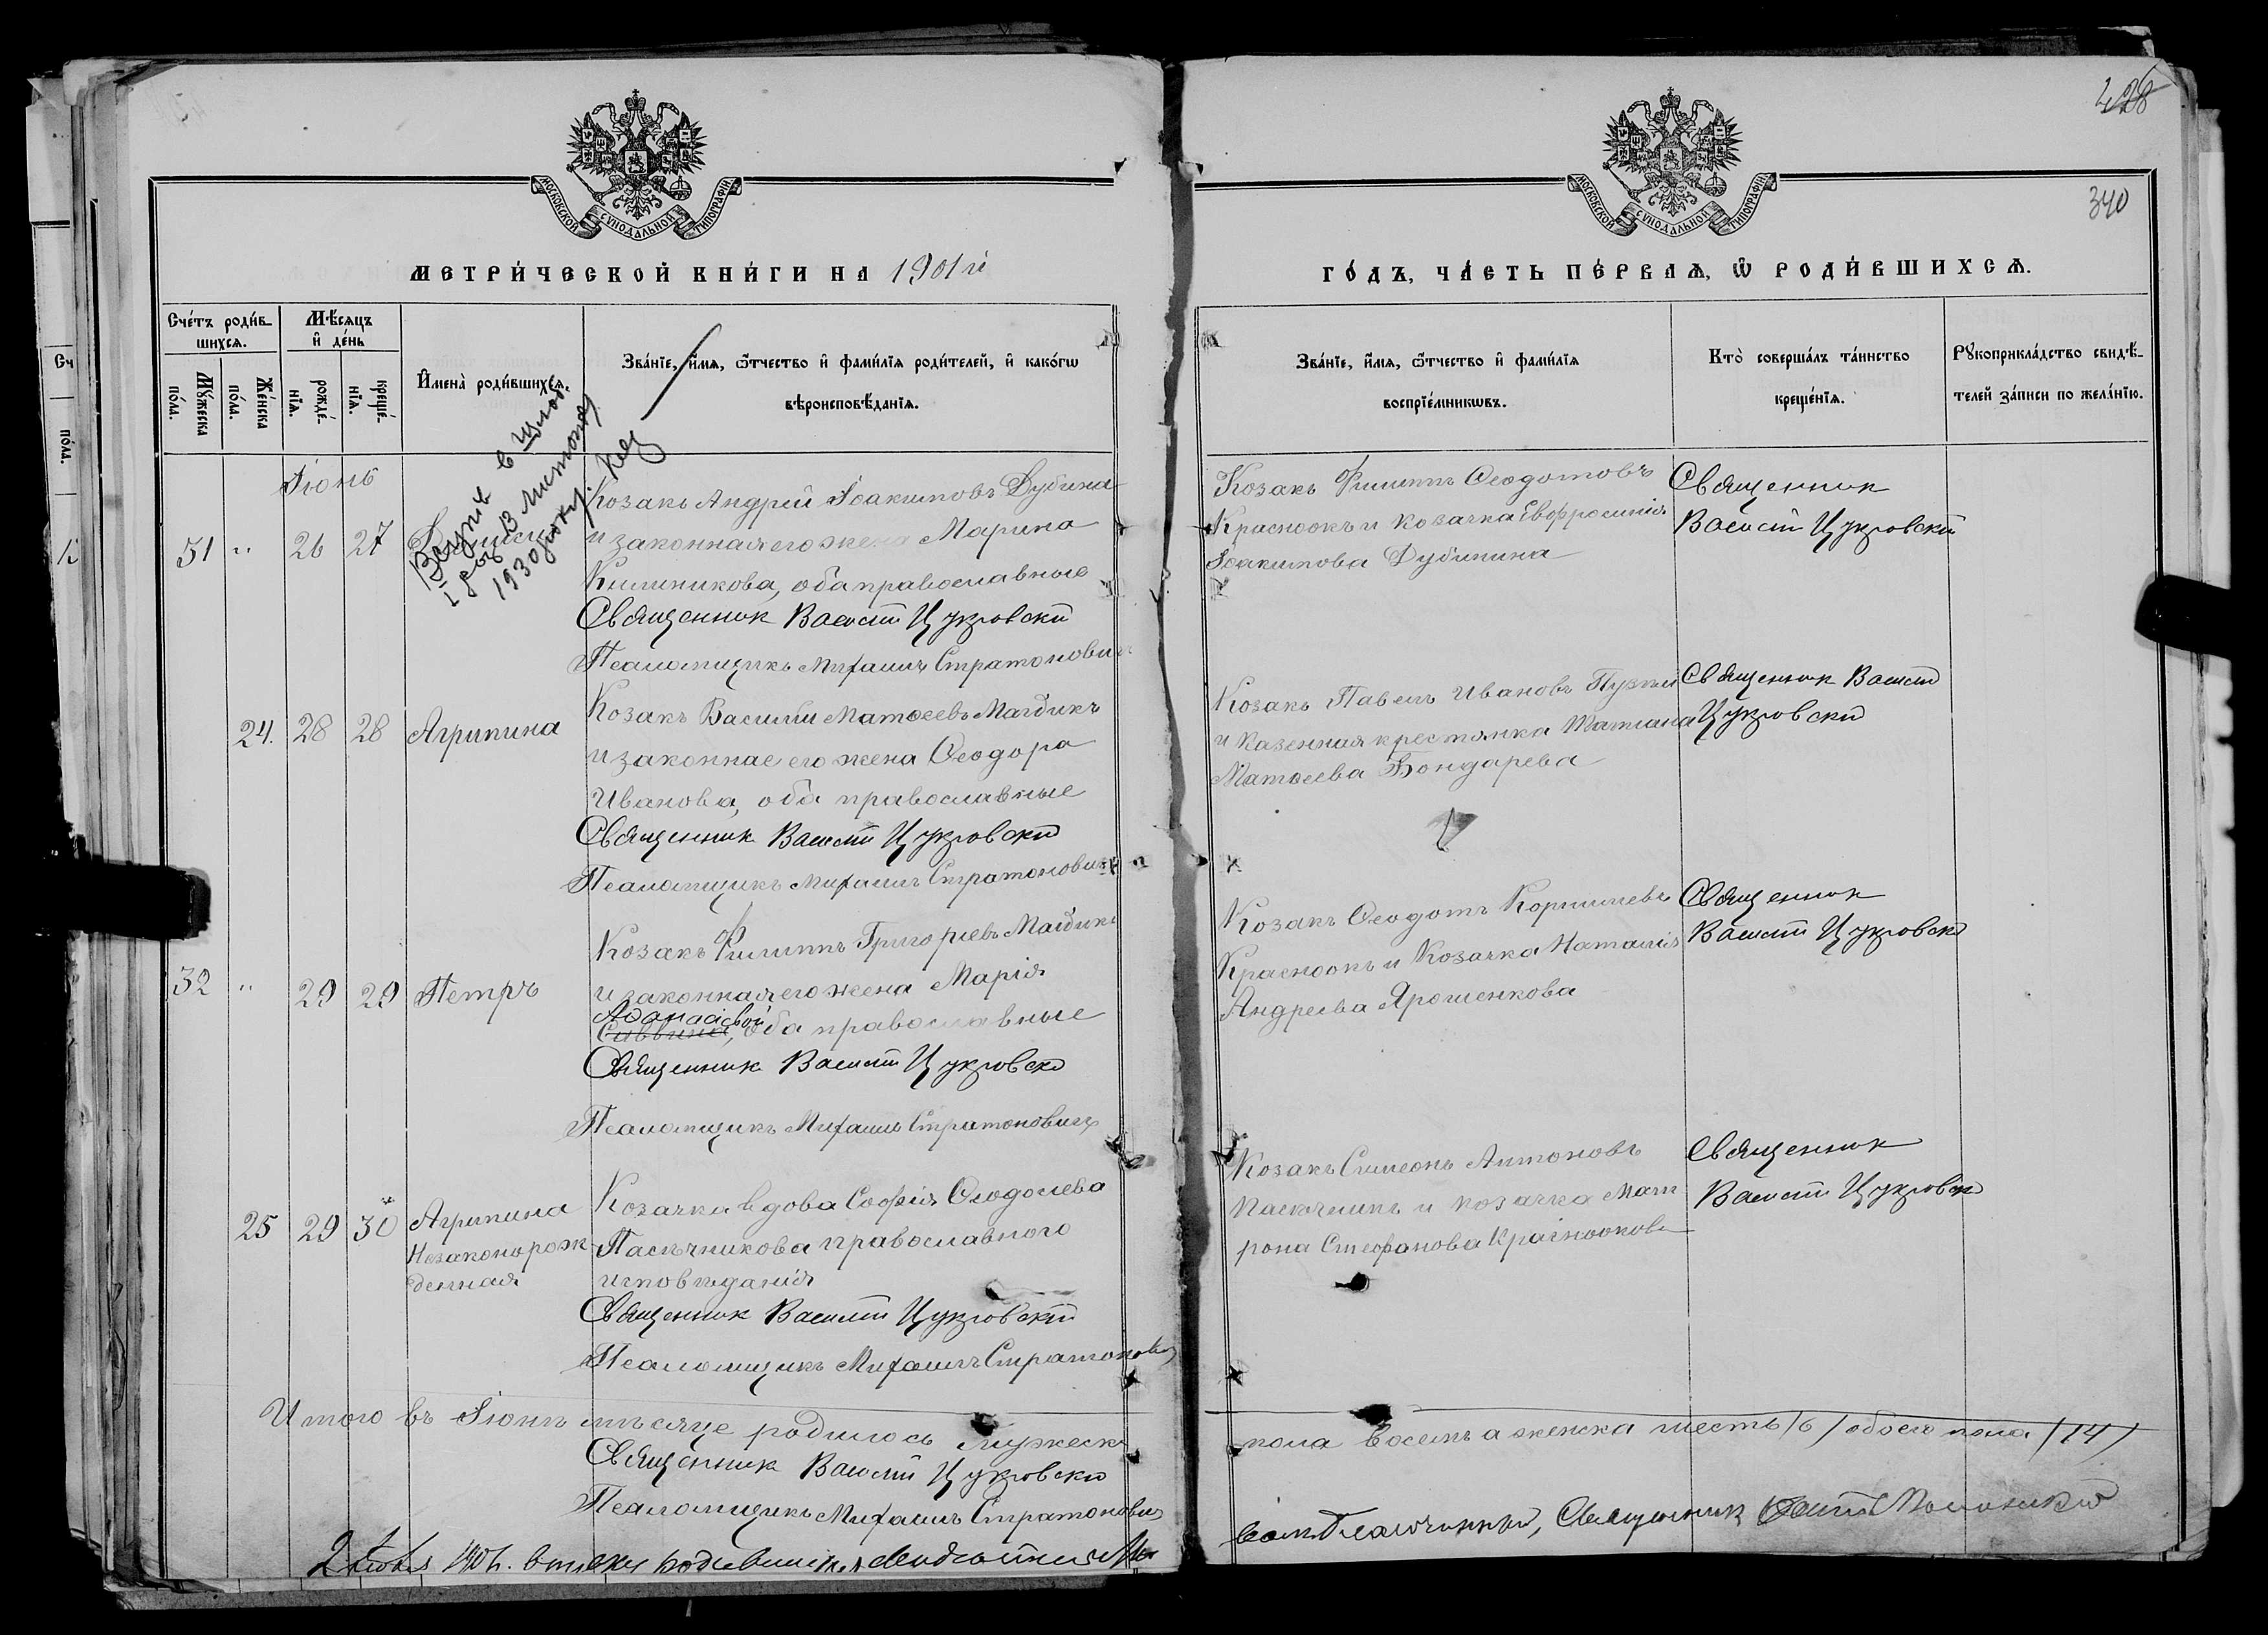 428
340
МОСКОВСКОЙ СѴНОДАЛЬНОЙ ТИПОГРАФІИ
МОСКОВСКОЙ СѴНОДАЛЬНОЙ ТИПОГРАФІИ
МЕТРИ́ЧЕСКОЙ КНИ́ГИ НА 1901й
ГО́ДЪ, ЧА́СТЬ ПЕ́РВАѦ, Ѡ҆ РОДИ́ВШИХСѦ.
Сче́тъ роди́в-
шихсѧ.
Мѣ́сѧцъ
и҆ де́нь
Мꙋ́жеска
по́ла.
Же́нска
по́ла.
рожде́-
нїѧ.
креще́-
нїѧ.
И҆мена̀ роди́вшихсѧ.
Зва́нїе, и҆́мѧ, ѻ҆́тчество и҆ фами́лїѧ роди́телей, и҆ како́гѡ
вѣроисповѣ́данїѧ.
Зва́нїе, и҆́мѧ, ѻ҆́тчество и҆ фами́лїѧ
воспрїе́мникѡвъ.
Кто̀ соверша́лъ та́инство
креще́нїѧ.
Рꙋкоприкла́дство свидѣ́-
телей за́писи по жела́нїю.
Іюнь
31 " 26 27
в
13
1930
Козакъ Андрей Іоакимовъ Дубина
и законная его жена Марина
оба православные
Священник Василій Цукровскій
Псаломщикъ Михаилъ Стратоновичъ
Козакъ Филиппъ Ѳеодотовъ
Красноокъ и козачка Евфросинія
Іоакимова Дубинина
Священник
Василій Цукровскій
24. 28 28 Агрипина
Козакъ Василій Матѳеевъ Магдикъ
и законнае его жена Ѳеодора
Иванова, оба православные
Священник Василій Цукровскій
Псаломщикъ Михаилъ Стратоновичъ
Козакъ Павелъ Ивановъ
и казенная крестянка Татіана
Матѳеева Бондарева
Священник Василій
Цукровскій
32 " 29 29 Петръ
Козакъ Филиппъ Григорьевъ Магдикъ
и законная его жена Марія
Аѳанасіевой
Саввина, оба православные
Священник Василій Цукровскій
Псаломщикъ Михаилъ Стратоновичъ
Козакъ Ѳеодотъ Корниліевъ
Красноокъ и Козачка Наталія
Андреева Ярошенкова
Священник
Василій Цукровскій
25 29 30 Агрипина
Незаконорож
денная
Козачка вдова Софія Ѳеодосіева
Пасѣчникова православного
исповѣданія
Священник Василій Цукровскій
Псаломщикъ Михаилъ Стратоновичъ
Козакъ Симеонъ Антоновъ
Пасѣчникъ и козачка Мат
рона Стефанова Красноокова
Священник
Василій Цукровскій
Итого въ Іюнѣ мѣсяце родилось мужеска
пола восемь а женска шесть /6/ обоего пола /14/
Священник Василій Цукровскій
Псаломщикъ Михаилъ Стратоновичъ
1901.
Священник